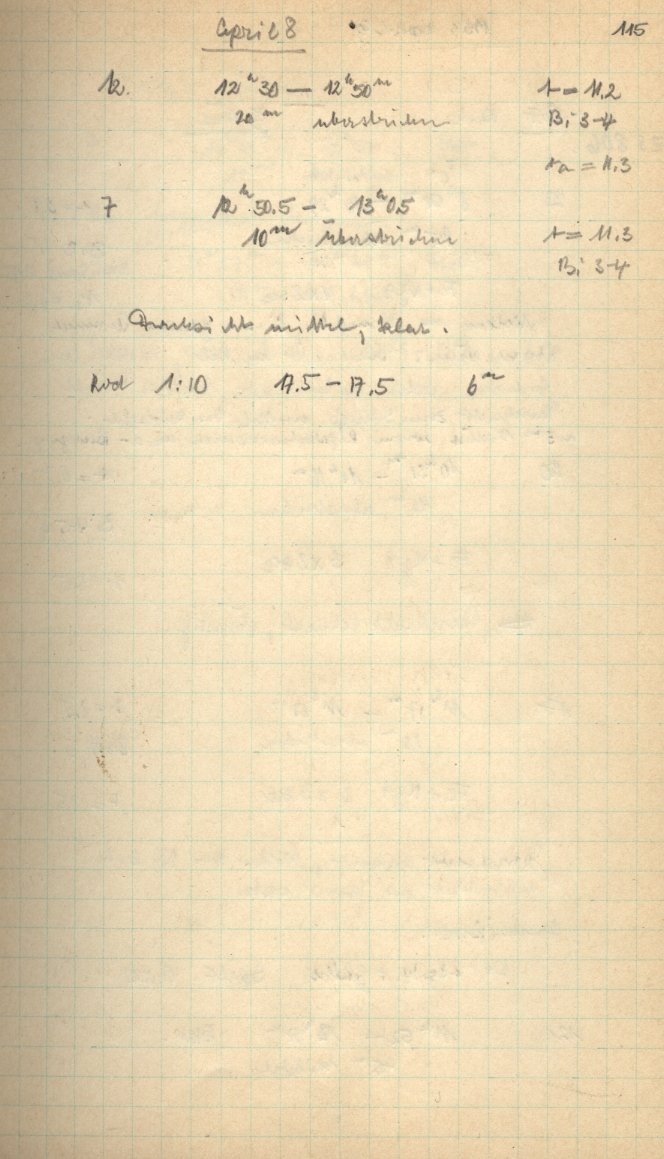 April 8 115
12. 12ʰ30 — 12ʰ50ᵐ t = 11.2
20ᵐ überstrichen Bi 3-4
ta = 11.3
7 12ʰ50.5 — 13ʰ0.5
10ᵐ überstrichen t = 11.3
Bi 3-4
Durchsicht mittel, klar.
Rod 1:10 17.5 — 17.5 6ᵐ